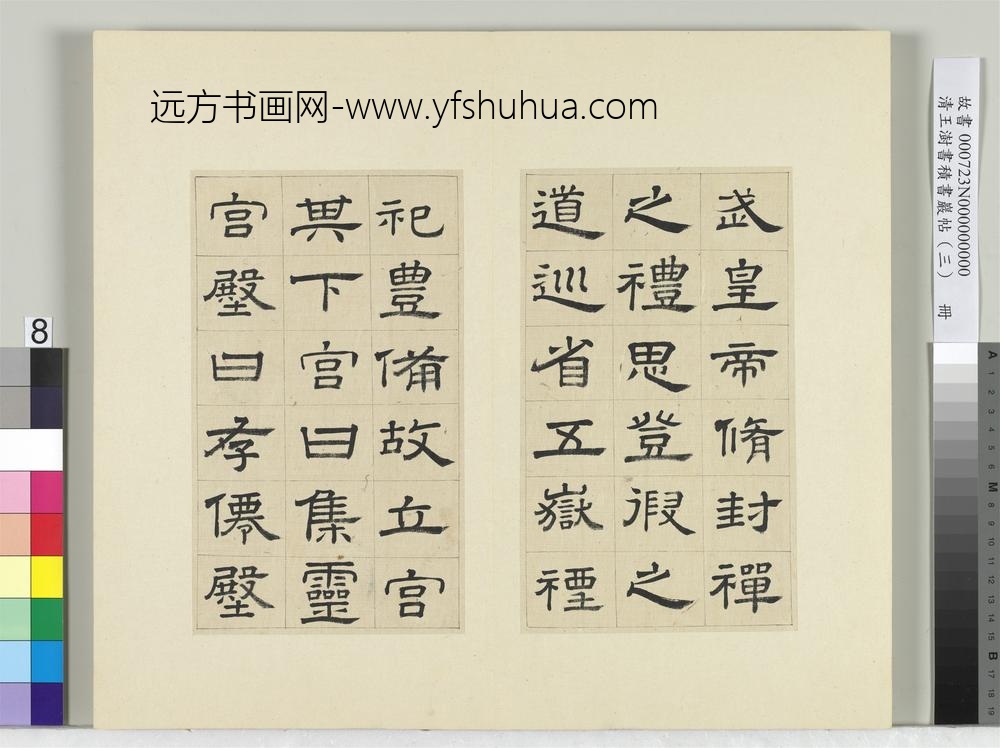 远方书画网-www.yfshuhua.com
武皇帝脩封禪
之禮思登徦之
道巡省五嶽禋
祀豊備故立宫
其下宫曰集靈
宫壂曰存僊壂
故書 000723N000000000
清王澍書積書巖帖(三) 冊
8
A 1 2 3 4 5 6 M 8 9 10 11 12 13 14 15 B 17 18 19